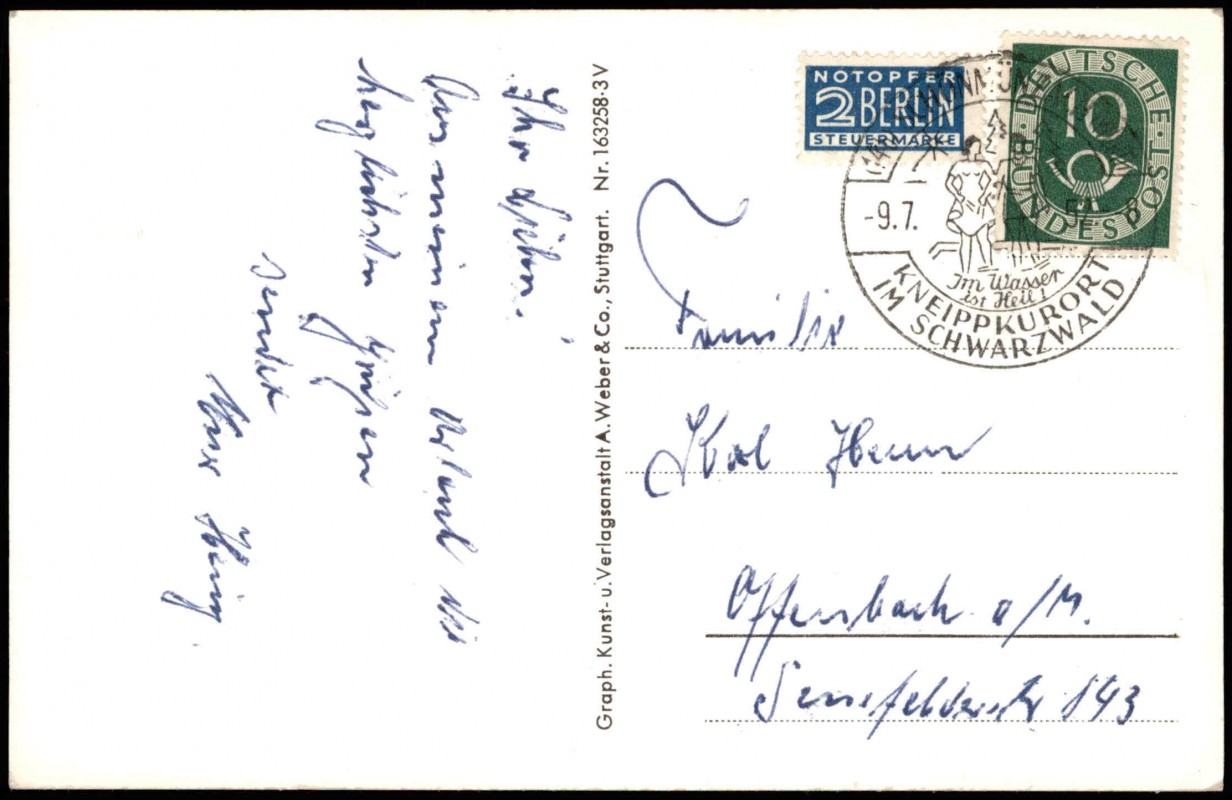 Ihr Lieben!
Aus meinem Urlaub die
herzlichsten Grüßen
sendet
Graph. Kunst- u. Verlagsanstalt A. Weber & Co., Stuttgart. Nr. 163258-3V
NOTOPFER
2 BERLIN
STEUERMARKE
DEUTSCHE BUNDESPOST
10
-9.7. 52
Im Wasser
ist Heil!
KNEIPPKURORT
IM SCHWARZWALD
Familie
Offenbach a/M.
Senefelderstr 143